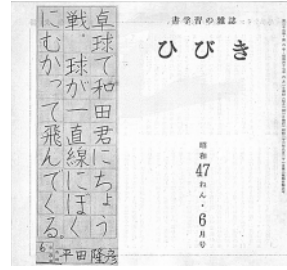 書学習の雑誌
ひびき
昭和
47
ねん・
6
月号
卓球で和田君にちょう
戦。球が一直線にほく
にむかって飛んでくる。
6
平田隆彦